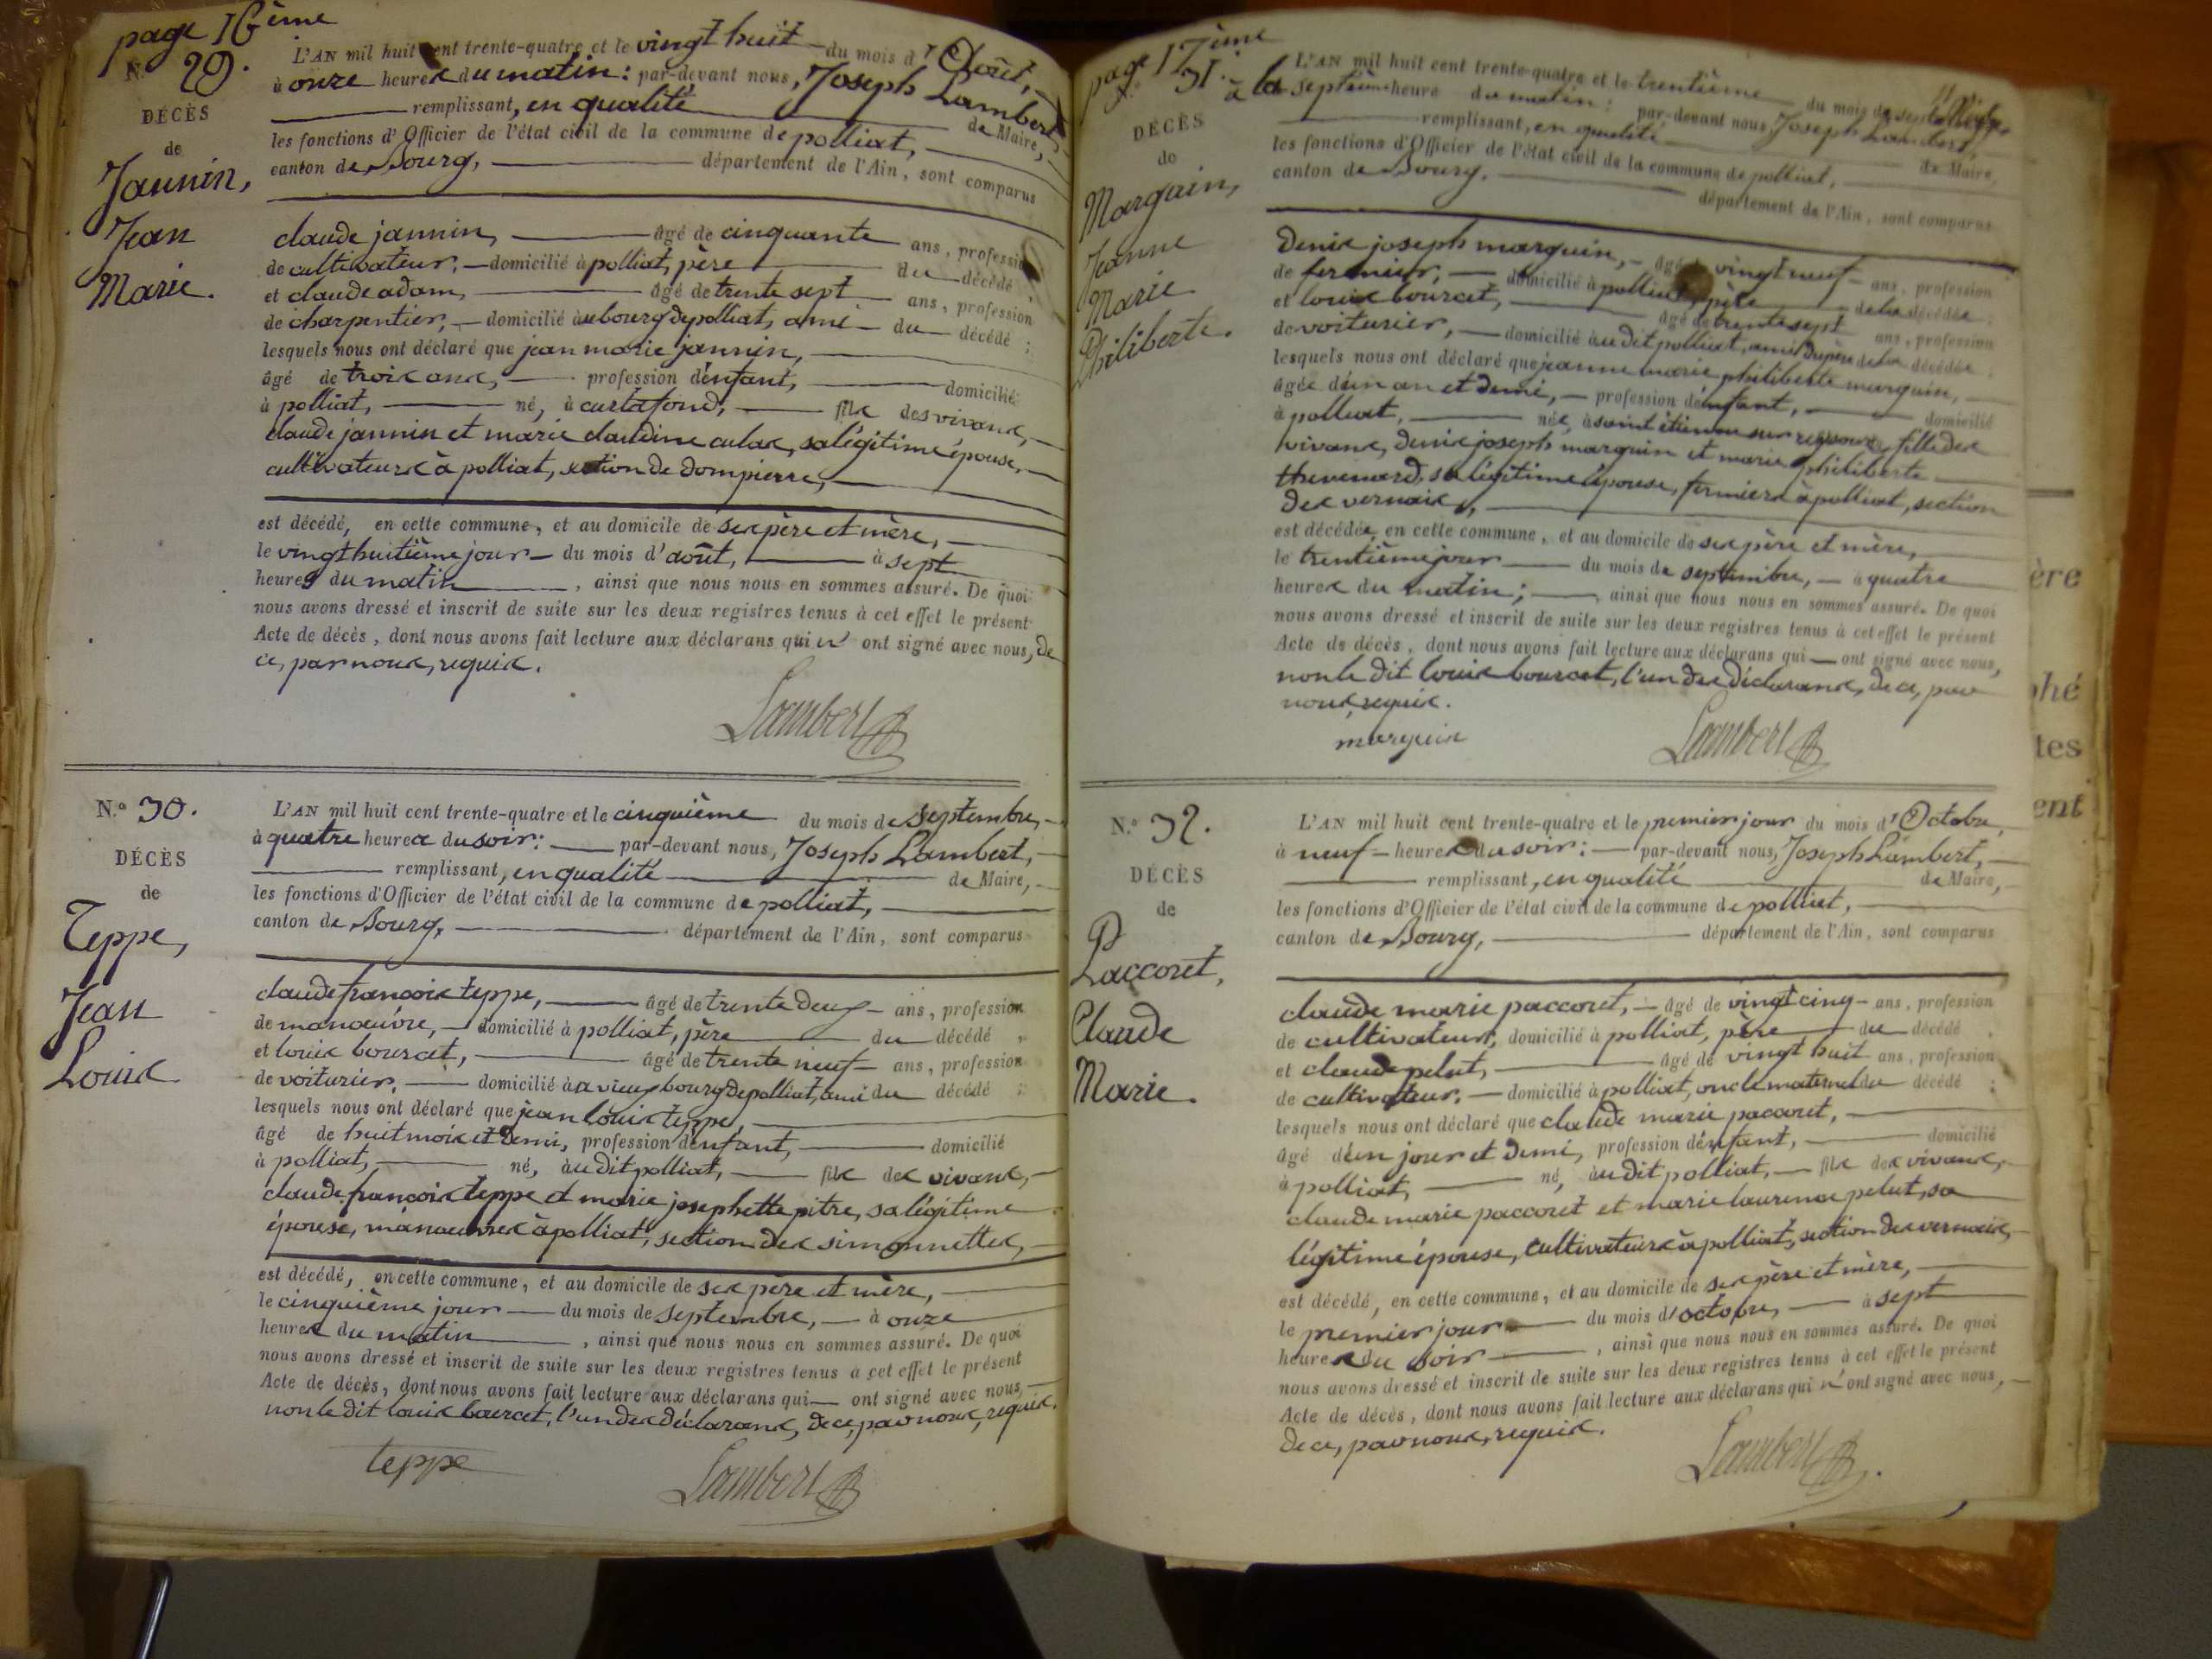 page 16ème
N.º 29.
DÉCÈS
de
Jannin,
Jean
Marie.
L'AN mil huit cent trente-quatre et le vingt huit du mois d'Août,
à onze heures du matin : par-devant nous, Joseph Lambert,
remplissant, en qualité de Maire,
les fonctions d'Officier de l'état civil de la commune de polliat,
canton de Bourg, département de l'Ain, sont comparus
claude jannin, âgé de cinquante ans, profession
de cultivateur, domicilié à polliat, père du décédé
et claude adam, âgé de trente sept ans, profession
de charpentier, domicilié au bourg de polliat, ami du décédé ;
lesquels nous ont déclaré que jean marie jannin,
âgé de trois ans, profession d'enfant, domicilié
à polliat, né, à curtafond, fils des vivans,
claude jannin et marie claudine culas, sa légitime épouse,
cultivateurs à polliat, section de dompierre,
est décédé, en cette commune, et au domicile de ses père et mère,
le vingt huitième jour du mois d'août, à sept
heures du matin, ainsi que nous nous en sommes assuré. De quoi
nous avons dressé et inscrit de suite sur les deux registres tenus à cet effet le présent
Acte de décès, dont nous avons fait lecture aux déclarans qui n'ont signé avec nous, de
ce, par nous, requis.
Lambert
N.º 30.
DÉCÈS
de
Teppe,
Jean
Louis
L'AN mil huit cent trente-quatre et le cinquième du mois de septembre,
à quatre heures du soir : par-devant nous, Joseph Lambert,
remplissant, en qualité de Maire,
les fonctions d'Officier de l'état civil de la commune de polliat,
canton de Bourg, département de l'Ain, sont comparus
claude françois teppe, âgé de trente deux ans, profession
de manoeuvre, domicilié à polliat, père du décédé
et louis bourcet, âgé de trente neuf ans, profession
de voiturier, domicilié au vieux bourg de polliat, ami du décédé ;
lesquels nous ont déclaré que jean louis teppe,
âgé de huit mois et demi, profession d'enfant, domicilié
à polliat, né, audit polliat, fils des vivans,
claude françois teppe et marie josephette pitre, sa légitime
épouse, manoeuvres à polliat, section des simonnettes,
est décédé, en cette commune, et au domicile de ses père et mère,
le cinquième jour du mois de septembre, à onze
heures du matin, ainsi que nous nous en sommes assuré. De quoi
nous avons dressé et inscrit de suite sur les deux registres tenus à cet effet le présent
Acte de décès, dont nous avons fait lecture aux déclarans qui ont signé avec nous,
non le dit louis bourcet, l'un des déclarans, de ce, par nous, requis.
teppe
Lambert
page 17ème
N.º 31.
DÉCÈS
de
Marguin,
Jeanne
Marie
Philiberte.
L'AN mil huit cent trente-quatre et le trentième du mois de septembre,
à la septième heure du matin : par-devant nous Joseph Lambert,
remplissant, en qualité de Maire,
les fonctions d'Officier de l'état civil de la commune de polliat,
canton de Bourg, département de l'Ain, sont comparus
Denis joseph marguin, âgé de vingt neuf ans, profession
de fermier, domicilié à polliat, père de la décédée
et louis bourcet, âgé de trente sept ans, profession
de voiturier, domicilié audit polliat, ami du père de la décédée
lesquels nous ont déclaré que jeanne marie philiberte marguin,
âgée d'un an et demi, profession d'enfant, domicilié
à polliat, née, à saint étienne sur reyssouze, fille des
vivans, denis joseph marguin et marie philiberte
thevenard, sa légitime épouse, fermiers à polliat, section
des vernais,
est décédée, en cette commune, et au domicile de ses père et mère,
le trentième jour du mois de septembre, à quatre
heures du matin ; ainsi que nous nous en sommes assuré. De quoi
nous avons dressé et inscrit de suite sur les deux registres tenus à cet effet le présent
Acte de décès, dont nous avons fait lecture aux déclarans qui ont signé avec nous,
non le dit louis bourcet, l'un des déclarans, de ce, par
nous, requis.
marguin
Lambert
N.º 32.
DÉCÈS
de
P
Paccoret,
Claude
Marie.
L'AN mil huit cent trente-quatre et le premier jour du mois d'Octobre,
à neuf heures du soir : par-devant nous, Joseph Lambert,
remplissant, en qualité de Maire,
les fonctions d'Officier de l'état civil de la commune de polliat,
canton de Bourg, département de l'Ain, sont comparus
claude marie paccoret, âgé de vingt cinq ans, profession
de cultivateur, domicilié à polliat, père du décédé
et claude pelut, âgé de vingt huit ans, profession
de cultivateur, domicilié à polliat, oncle maternel du décédé ;
lesquels nous ont déclaré que claude marie paccoret,
âgé d'un jour et demi, profession d'enfant, domicilié
à polliat, né, audit polliat, fils des vivans,
claude marie paccoret et marie laurence pelut, sa
légitime épouse, cultivateurs à polliat, section des vernais,
est décédé, en cette commune, et au domicile de ses père et mère,
le premier jour du mois d'octobre, à sept
heures du soir, ainsi que nous nous en sommes assuré. De quoi
nous avons dressé et inscrit de suite sur les deux registres tenus à cet effet le présent
Acte de décès, dont nous avons fait lecture aux déclarans qui n'ont signé avec nous,
de ce, par nous, requis.
Lambert
ère
phé
tes
ent